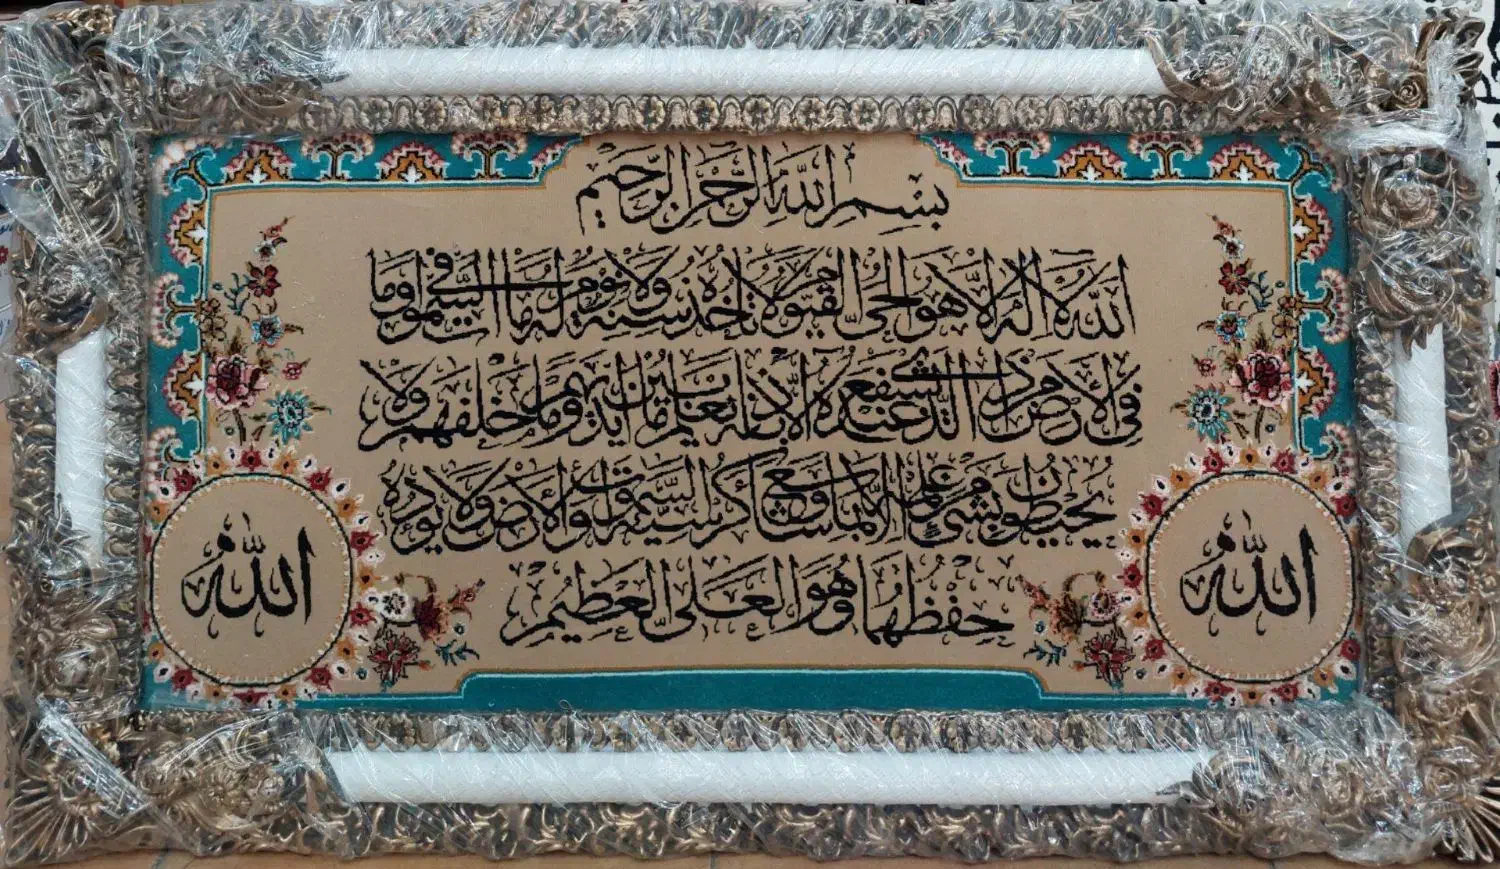 بِسْمِ اللهِ الرَّحْمٰنِ الرَّحِيْمِ
اللهُ لَا اِلٰهَ اِلَّا هُوَ الْحَىُّ الْقَيُّوْمُ لَا تَأْخُذُهٗ سِنَةٌ وَلَا نَوْمٌ لَهٗ مَا فِى السَّمٰوٰتِ وَمَا
فِى الْاَرْضِ مَنْ ذَا الَّذِىْ يَشْفَعُ عِنْدَهٗ اِلَّا بِاِذْنِهٖ يَعْلَمُ مَا بَيْنَ اَيْدِيْهِمْ وَمَا خَلْفَهُمْ وَلَا
يُحِيْطُوْنَ بِشَىْءٍ مِنْ عِلْمِهٖ اِلَّا بِمَا شَآءَ وَسِعَ كُرْسِيُّهُ السَّمٰوٰتِ وَالْاَرْضَ وَلَا يَؤُدُهٗ
حِفْظُهُمَا وَهُوَ الْعَلِىُّ الْعَظِيْمُ
الله
الله